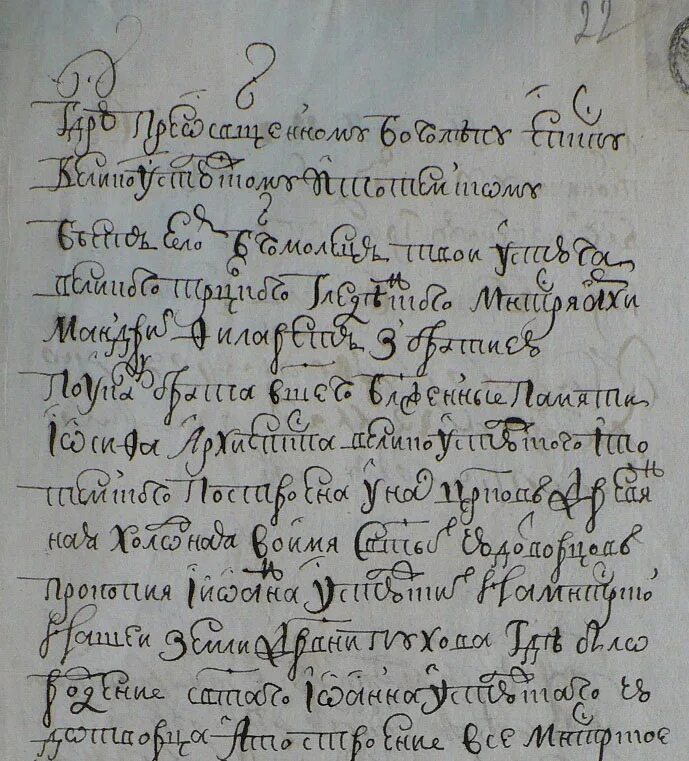 22
Гдрю преѡсщенному Боголѣпу еппу
великоустюжскому и тотемскому
бьетъ челом бгомолецъ твои устюга
великого трцкого гледенского мнстря архи
мандрит Филаретъ з братиею
По указу брата вшего блженные памяти
Іѡсифа архиеппа великоустюжского и то
темского построена у нас црковь древян
ная холодная во имя святых чюдотворцовъ
прокопия и іѡанна устюжских на мнстрской
нашеи земли Пухова гдѣ было
рождение святаго Іѡанна устюжскаго чю
дотворца А то строение все мнстрское